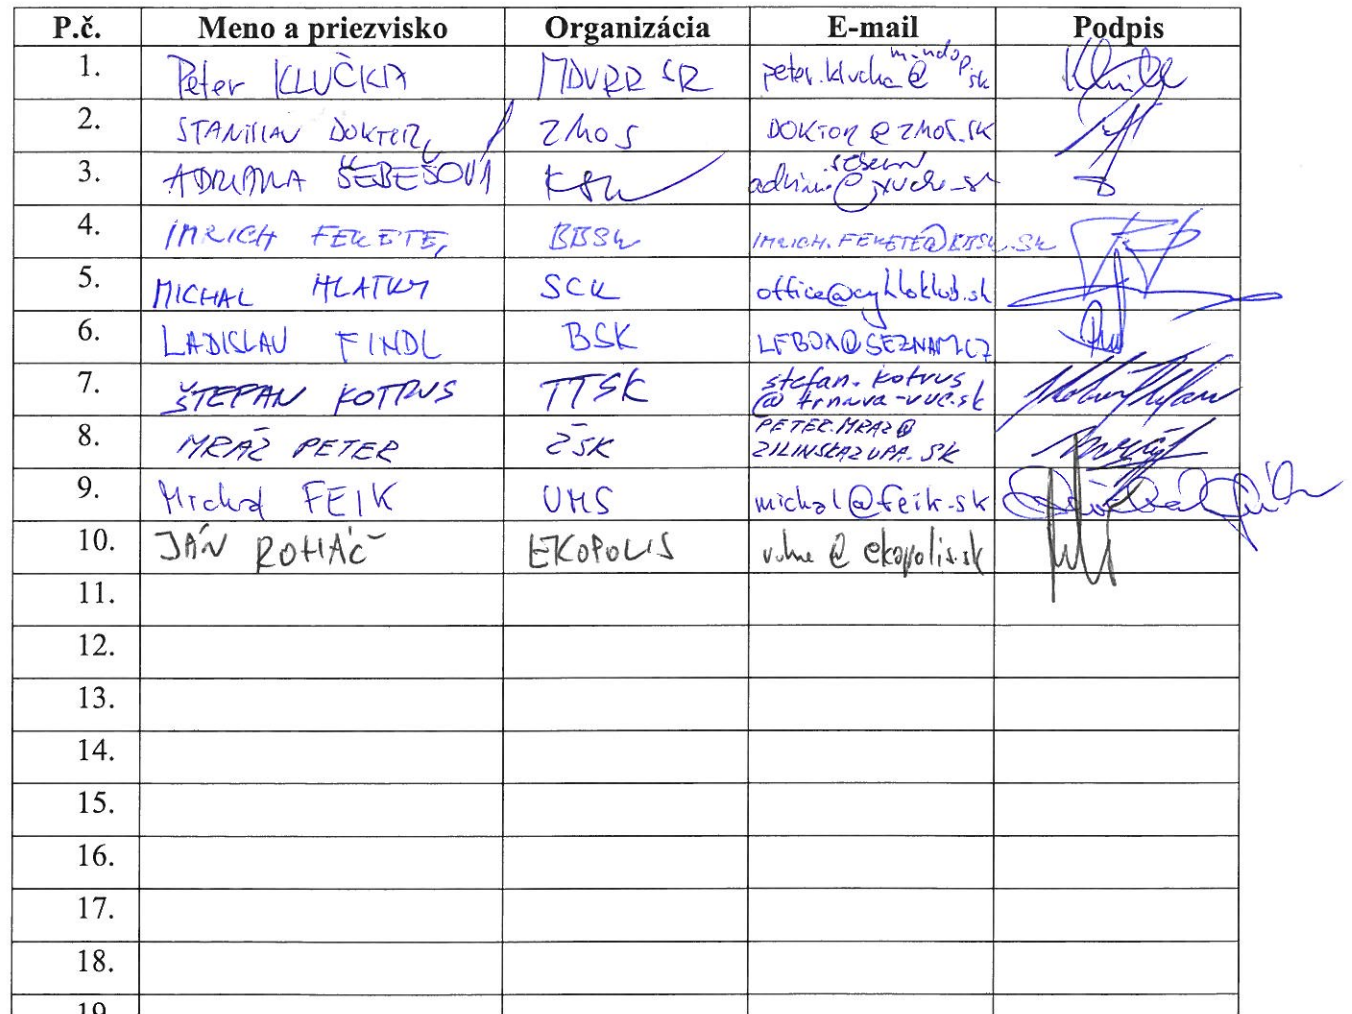 P.č. Meno a priezvisko Organizácia E-mail Podpis
1. Peter KLUČKA MDVRR SR peter.klucka@mindop.sk
2. STANISLAV DOKTOR, ZMOS DOKTOR@ZMOS.SK
3. ADRIANA ŠEBEŠOVÁ KSK
4. IMRICH FEKETE, BBSK IMRICH.FEKETE@BBSK.SK
5. MICHAL HLATKY SCK office@cykloklub.sk
6. LADISLAV FINDL BSK LFBDA@SEZNAM.CZ
7. ŠTEFAN KOTRUS TTSK stefan.kotrus
@trnava-vuc.sk
8. MRÁZ PETER ŽSK PETER.MRAZ@
ZILINSKAZUPA.SK
9. Michal FEIK UMS michal@feik.sk
10. JÁN ROHÁČ EKOPOLIS @ekopolis.sk
11.
12.
13.
14.
15.
16.
17.
18.
19.